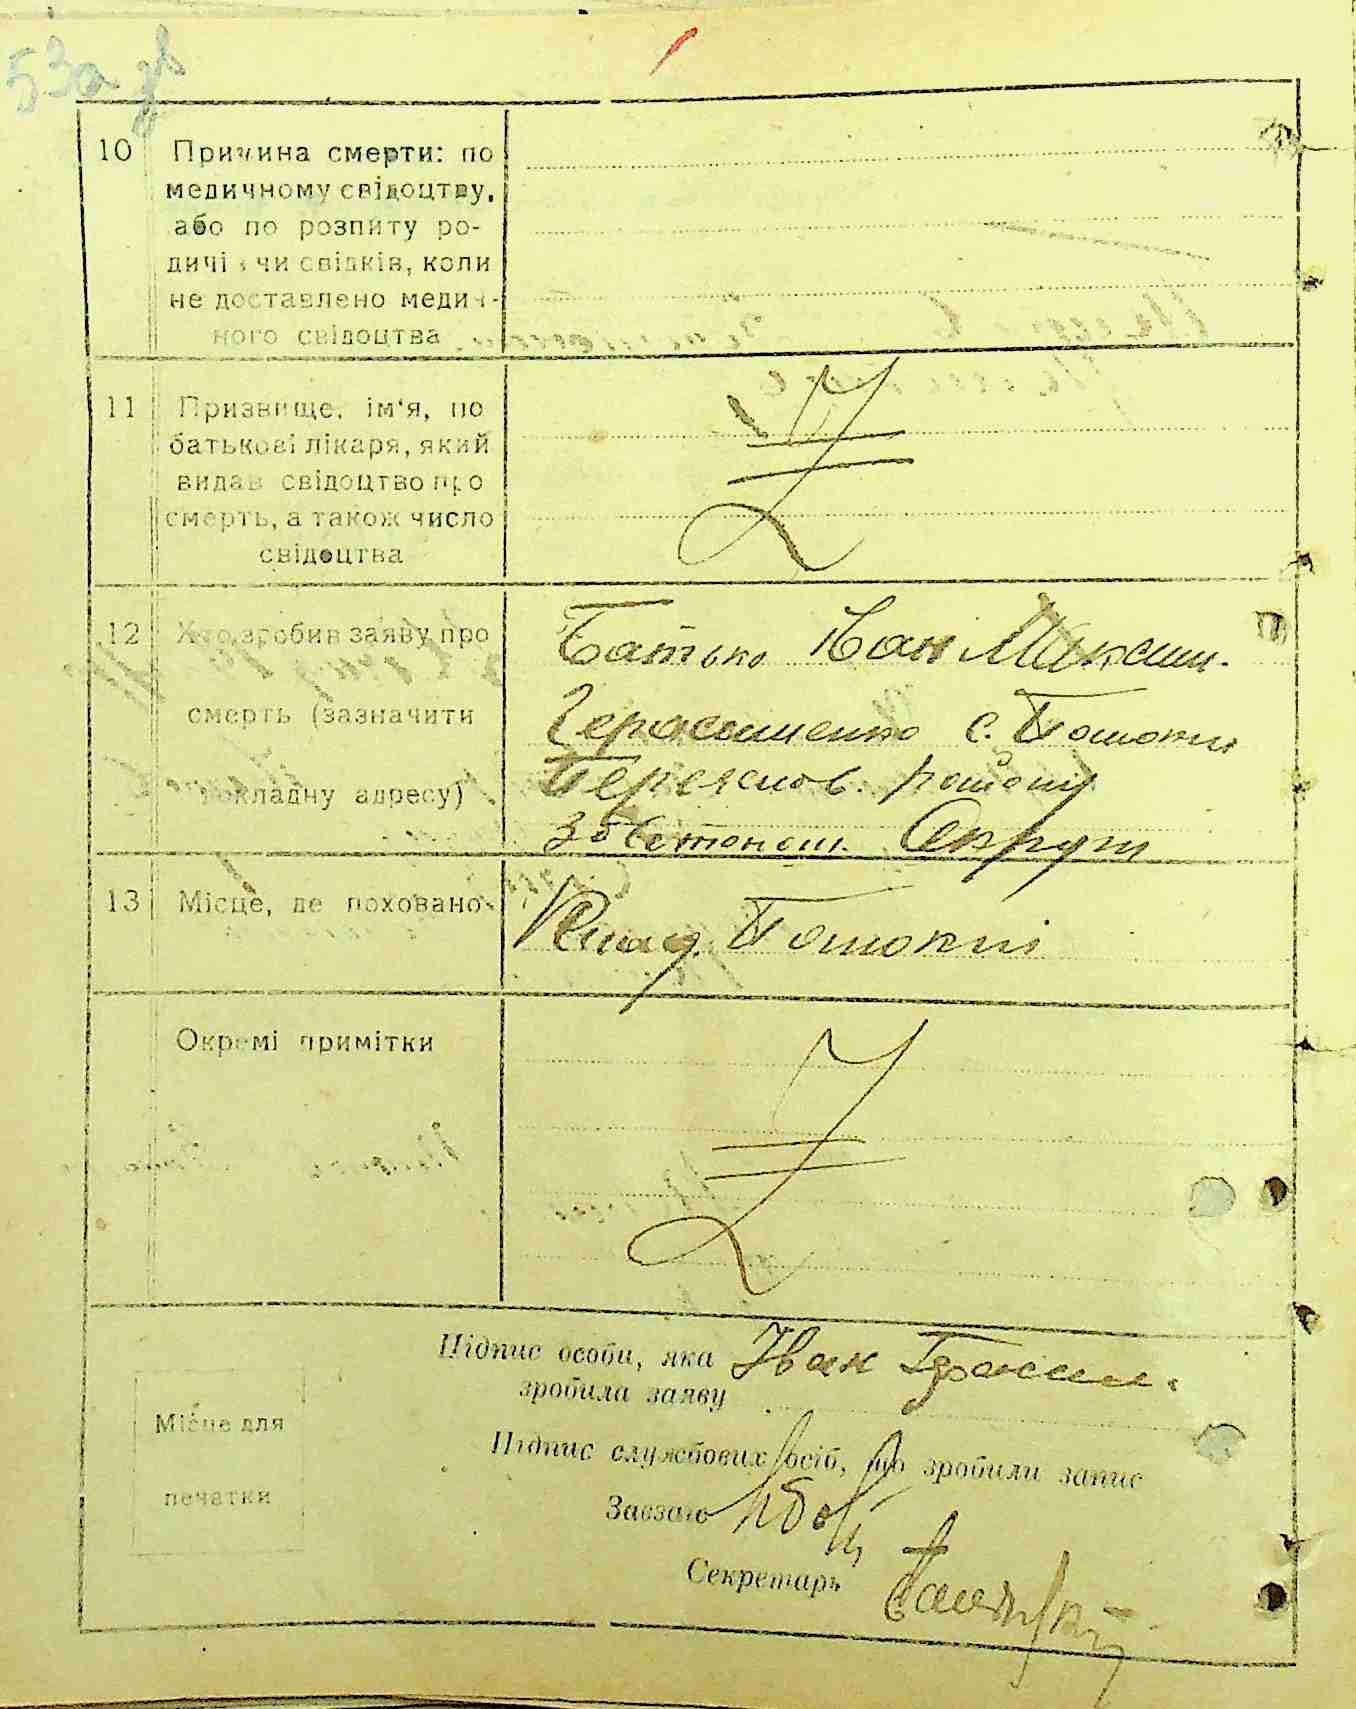 53а зв
10 Причина смерти: по
медичному свідоцтву,
або по розпиту ро-
дичів чи свідків, коли
не доставлено медич-
ного свідоцтва
11 Призвище, ім'я, по
батькові лікаря, який
видав свідоцтво про
смерть, а також число
свідоцтва
12 Хто зробив заяву про
смерть (зазначити
докладну адресу)
Батько Іван Максим.
Герасименко с. Помокли
Переяслов. району
Золотонош. Округи
13 Місце, де поховано
Клад. Помоклі
Окремі примітки
Підпис особи, яка Іван Герасим.
зробила заяву
Місце для
печатки
Підпис службових осіб, що зробили запис
Завзаго
Секретарь